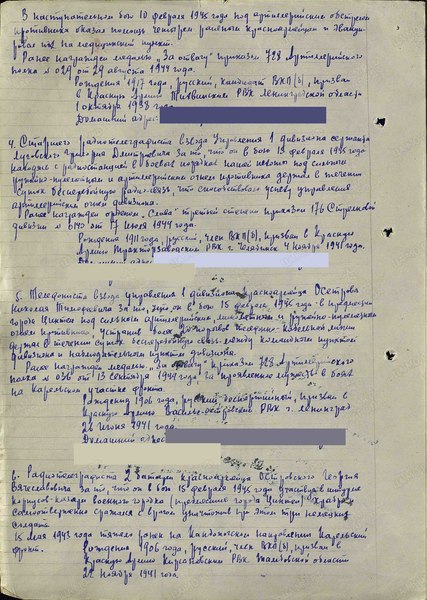 В наступательном бою 10 февраля 1945 года под артиллерийским обстрелом
противника оказал помощь четырем раненым красноармейцам и эвакуи-
ровал их на медицинский пункт.
Ранее награжден медалью "За отвагу" приказом 728 Артиллерийского
полка № 029 от 29 августа 1944 года.
Рождения 1917 года, русский, кандидат ВКП(б), призван
в Красную Армию Тихвинским РВК Ленинградской области
1 октября 1938 года.
Домашний адрес:
4. Старшего радиотелеграфиста взвода управления 1 дивизиона сержанта
Дмитриевича за то, что он в бою 15 февраля 1945 года
находясь с радиостанцией в боевых порядках нашей пехоты под сильным
ружейно-пулеметным и артиллерийским огнем противника держал в течении
суток бесперебойную радио-связь что способствовало успеху управления
артиллерийским огнем дивизиона.
Ранее награжден орденом "Слава" третьей степени приказом 176 Стрелковой
дивизии № 040 от 17 июля 1944 года.
Рождения 1911 года, русский, член ВКП(б), призван в Красную
Армию Тракторозаводским РВК г. Челябинск 4 ноября 1941 года.
Домашний адрес
5. Телефониста взвода управления 1 дивизиона красноармейца Осетрова
Николая Тимофеевича за то, что он в бою 15 февраля 1945 года в предместье
города Цинтен под сильным артиллерийским, минометным и ружейно-пулеметным
огнем противника устранил более порывов телефонно-кабельной линии
держал в течении суток бесперебойную связь между командным пунктом
дивизиона и наблюдательным пунктом дивизиона.
Ранее награжден медалью "За отвагу" приказом 728 Артиллерийского
полка № 036 от 13 сентября 1944 года за проявленное мужество в боях
на Карельском участке фронта.
Рождения 1906 года, русский, беспартийный, призван в
Красную Армию Василе-островским РВК г. Ленинград
26 июня 1941 года.
Домашний адрес
6. Радиотелеграфиста 2 батареи красноармейца Островского Георгия
Вячеславовича за то, что он в бою 15 февраля 1945 года участвуя в штурме
корпусов-казарм военного городка (предместье города Цинтен) храбро и
самоотверженно сражался с врагом уничтожив при этом три немецких
солдат.
15 мая 1943 года тяжело ранен на Кандалакшском направлении Карельский
фронт.
Рождения 1906 года, русский, член ВКП(б), призван в
Красную Армию Кирсановским РВК Тамбовской области
22 ноября 1941 года.